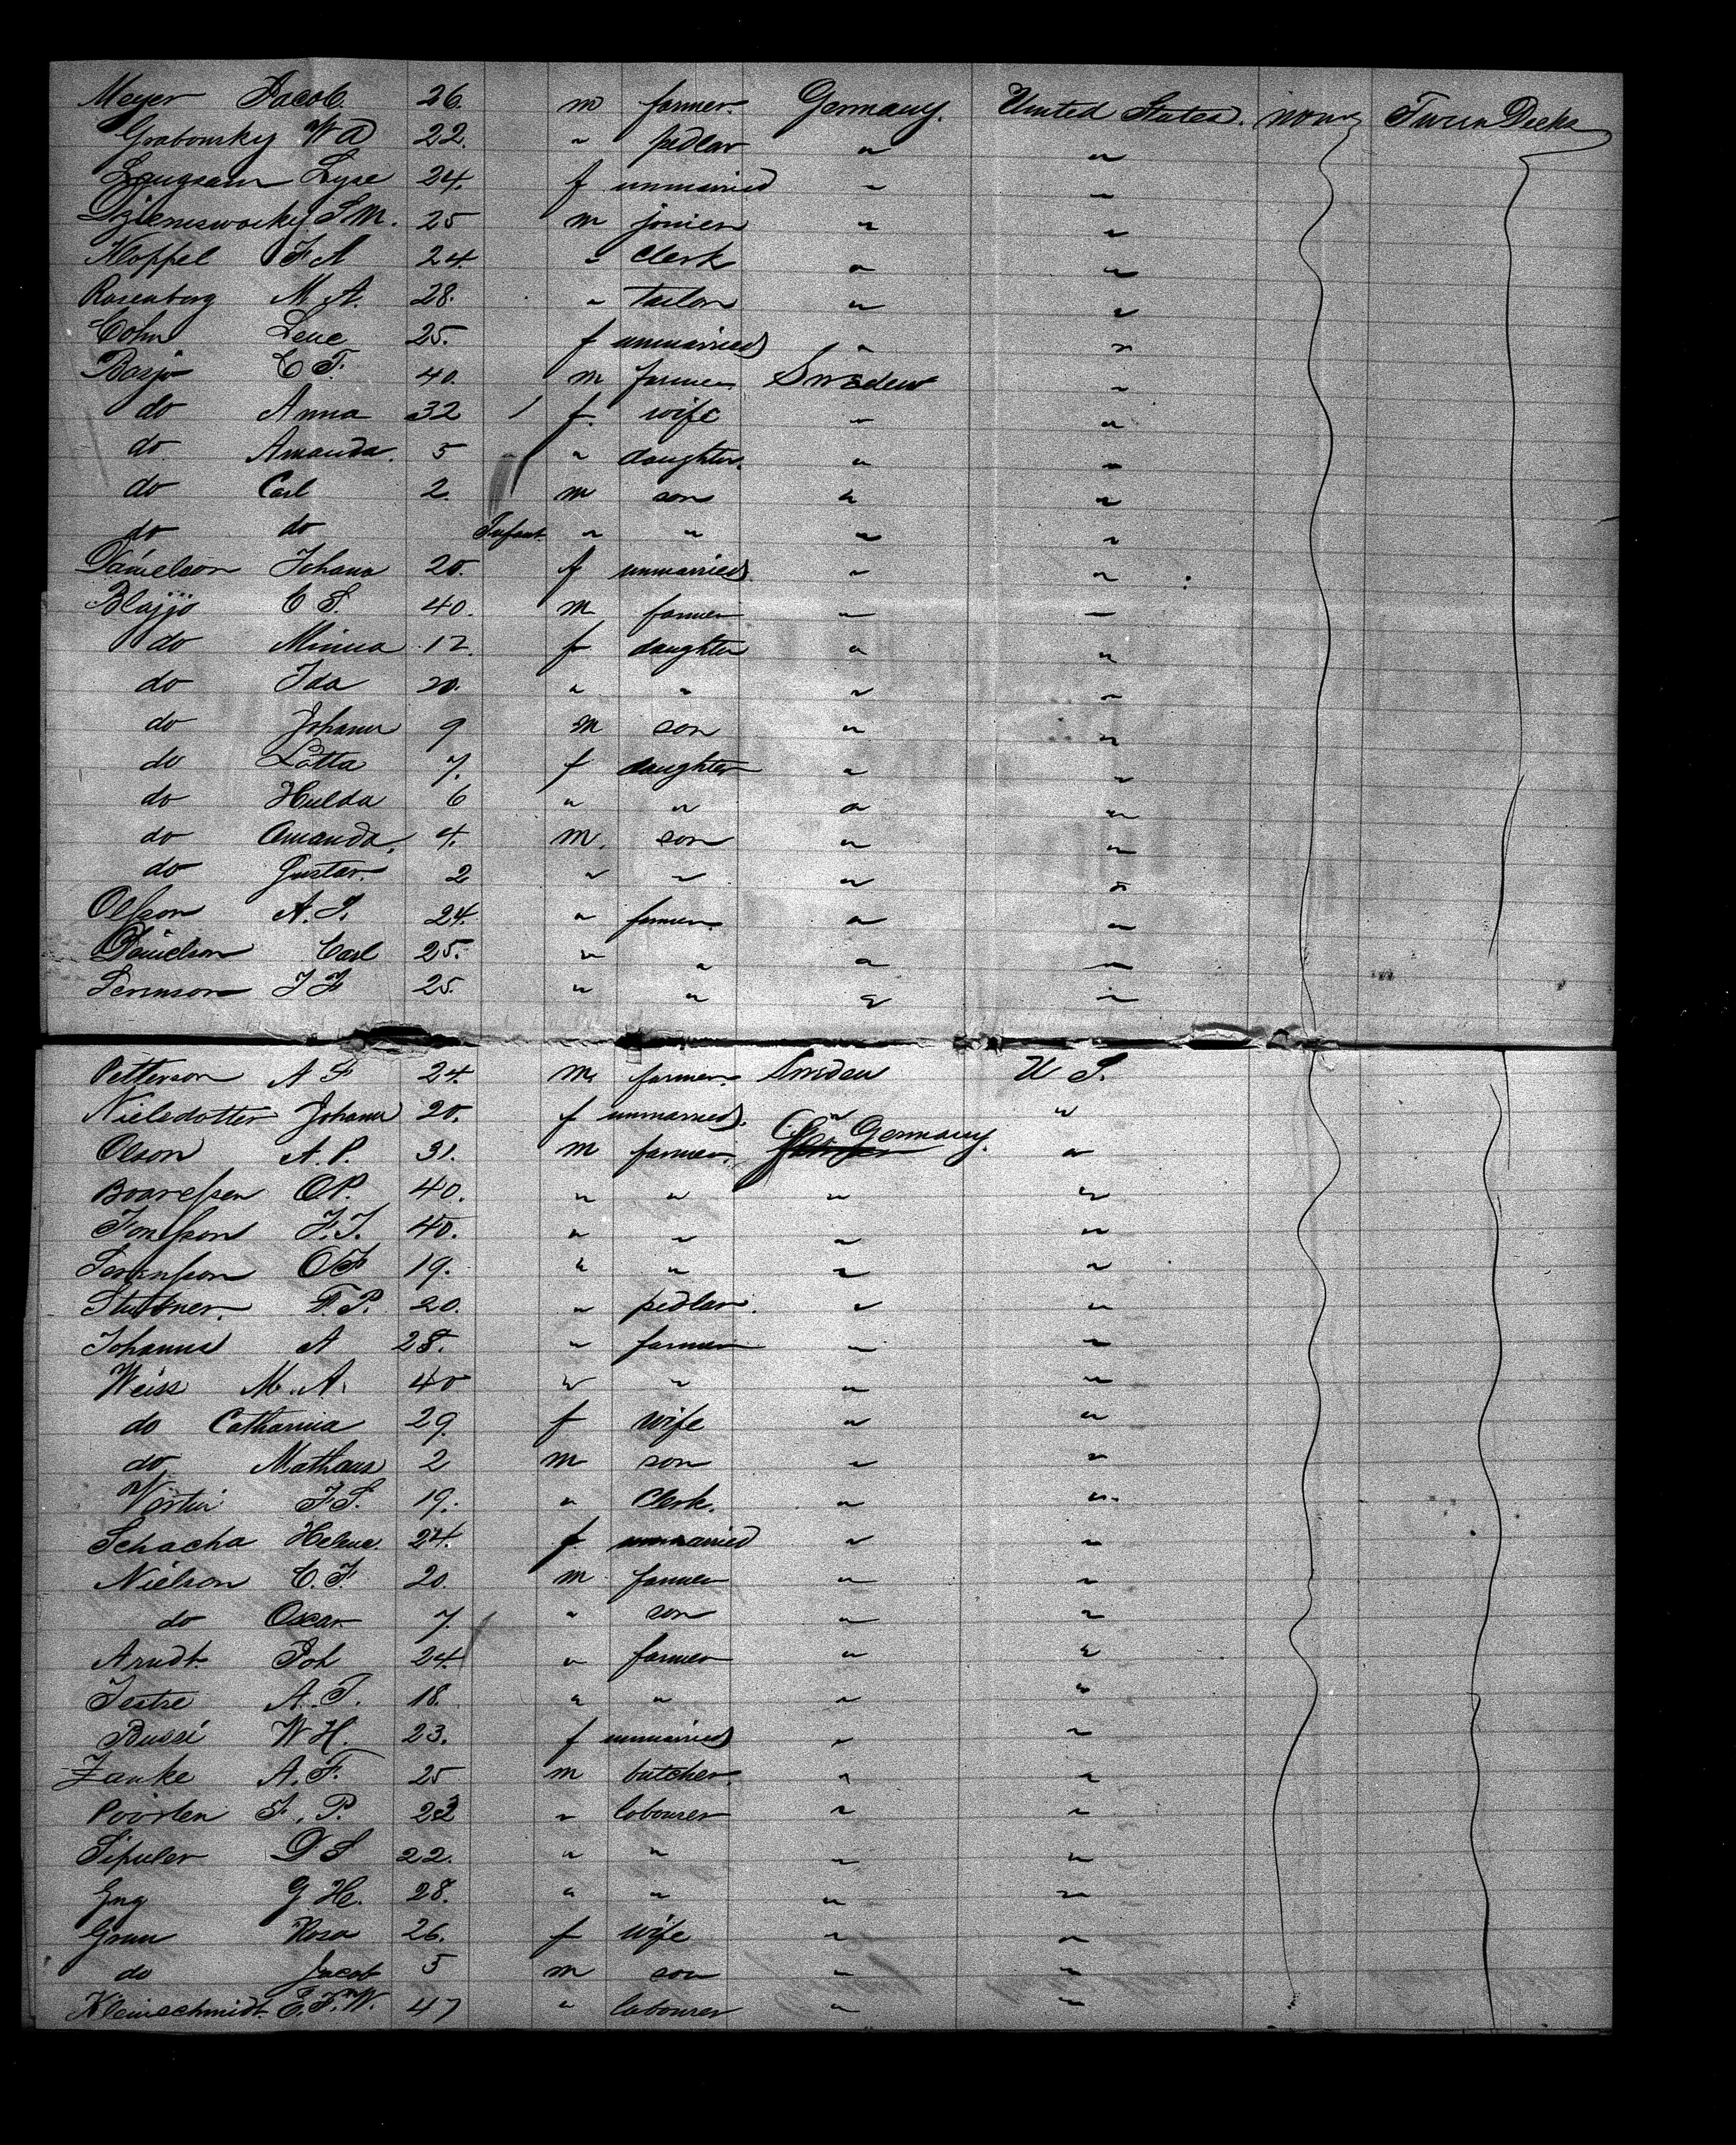 Meyer Jacob 26. m farmer. Germany. United States. none Twin Decks
Grabowsky W A 22. " pedlar " "
Langsam Lyse 24. f unmarried " "
S M. 25 m joiner " "
Kloppel F A 24. " Clerk " "
Rosenberg M. A. 28. " tailor " "
Cohn Lene 25. f unmarried " "
C F. 40. m farmer Sweden "
do Anna 32 f. wife " "
do. Amanda. 5 " daughter. " "
do Carl 2. m son " "
do do Infant " " " "
Danielson Johana 20. f unmarried " "
C S. 40. m farmer " "
do Minna 12. f daughter " "
do Ida 20. " " " "
do Johann 9 m son " "
do Lotta 7. f daughter " "
do Hulda 6 " " " "
do Amanda. 4. m. son " "
do Gustav. 2 " " " "
Olsson A. S. 24. " farmer. " "
Danielson Carl 25. " " " "
J F 25. " " " "
Petterson A F 24. m. farmer. Sweden U S.
Nielsdotter Johann 20. f unmarried. " "
Olson A. P. 31. m farmer. Germany. "
O P. 40. " " " "
F. J. 40. " " " "
O F 19. " " " "
Stuttner. F. P. 20. " pedlar. " "
Johanns A 28. " farmer " "
Weiss M. A. 40 " " " "
do Catharina 29. f wife " "
do Mathaus 2 m son " "
F. S. 19. " Clerk. " "
Schacha Helene 24. f unmarried " "
Nielson C. F. 20. m farmer " "
do Oscar 7. " son " "
Arndt. Joh 24. " farmer " "
A. S. 18. " " " "
Bussi W H. 23. f unmarried " "
Zanke A. F. 25 m butcher. " "
F. P. 22 " labourer " "
Sipuler D S 22. " " " "
Eng G H. 28. " " " "
Grun Rosa 26. f wife " "
do Jacob 5 m son " "
Kleinschmidt. E. F. W. 47 " labourer " "